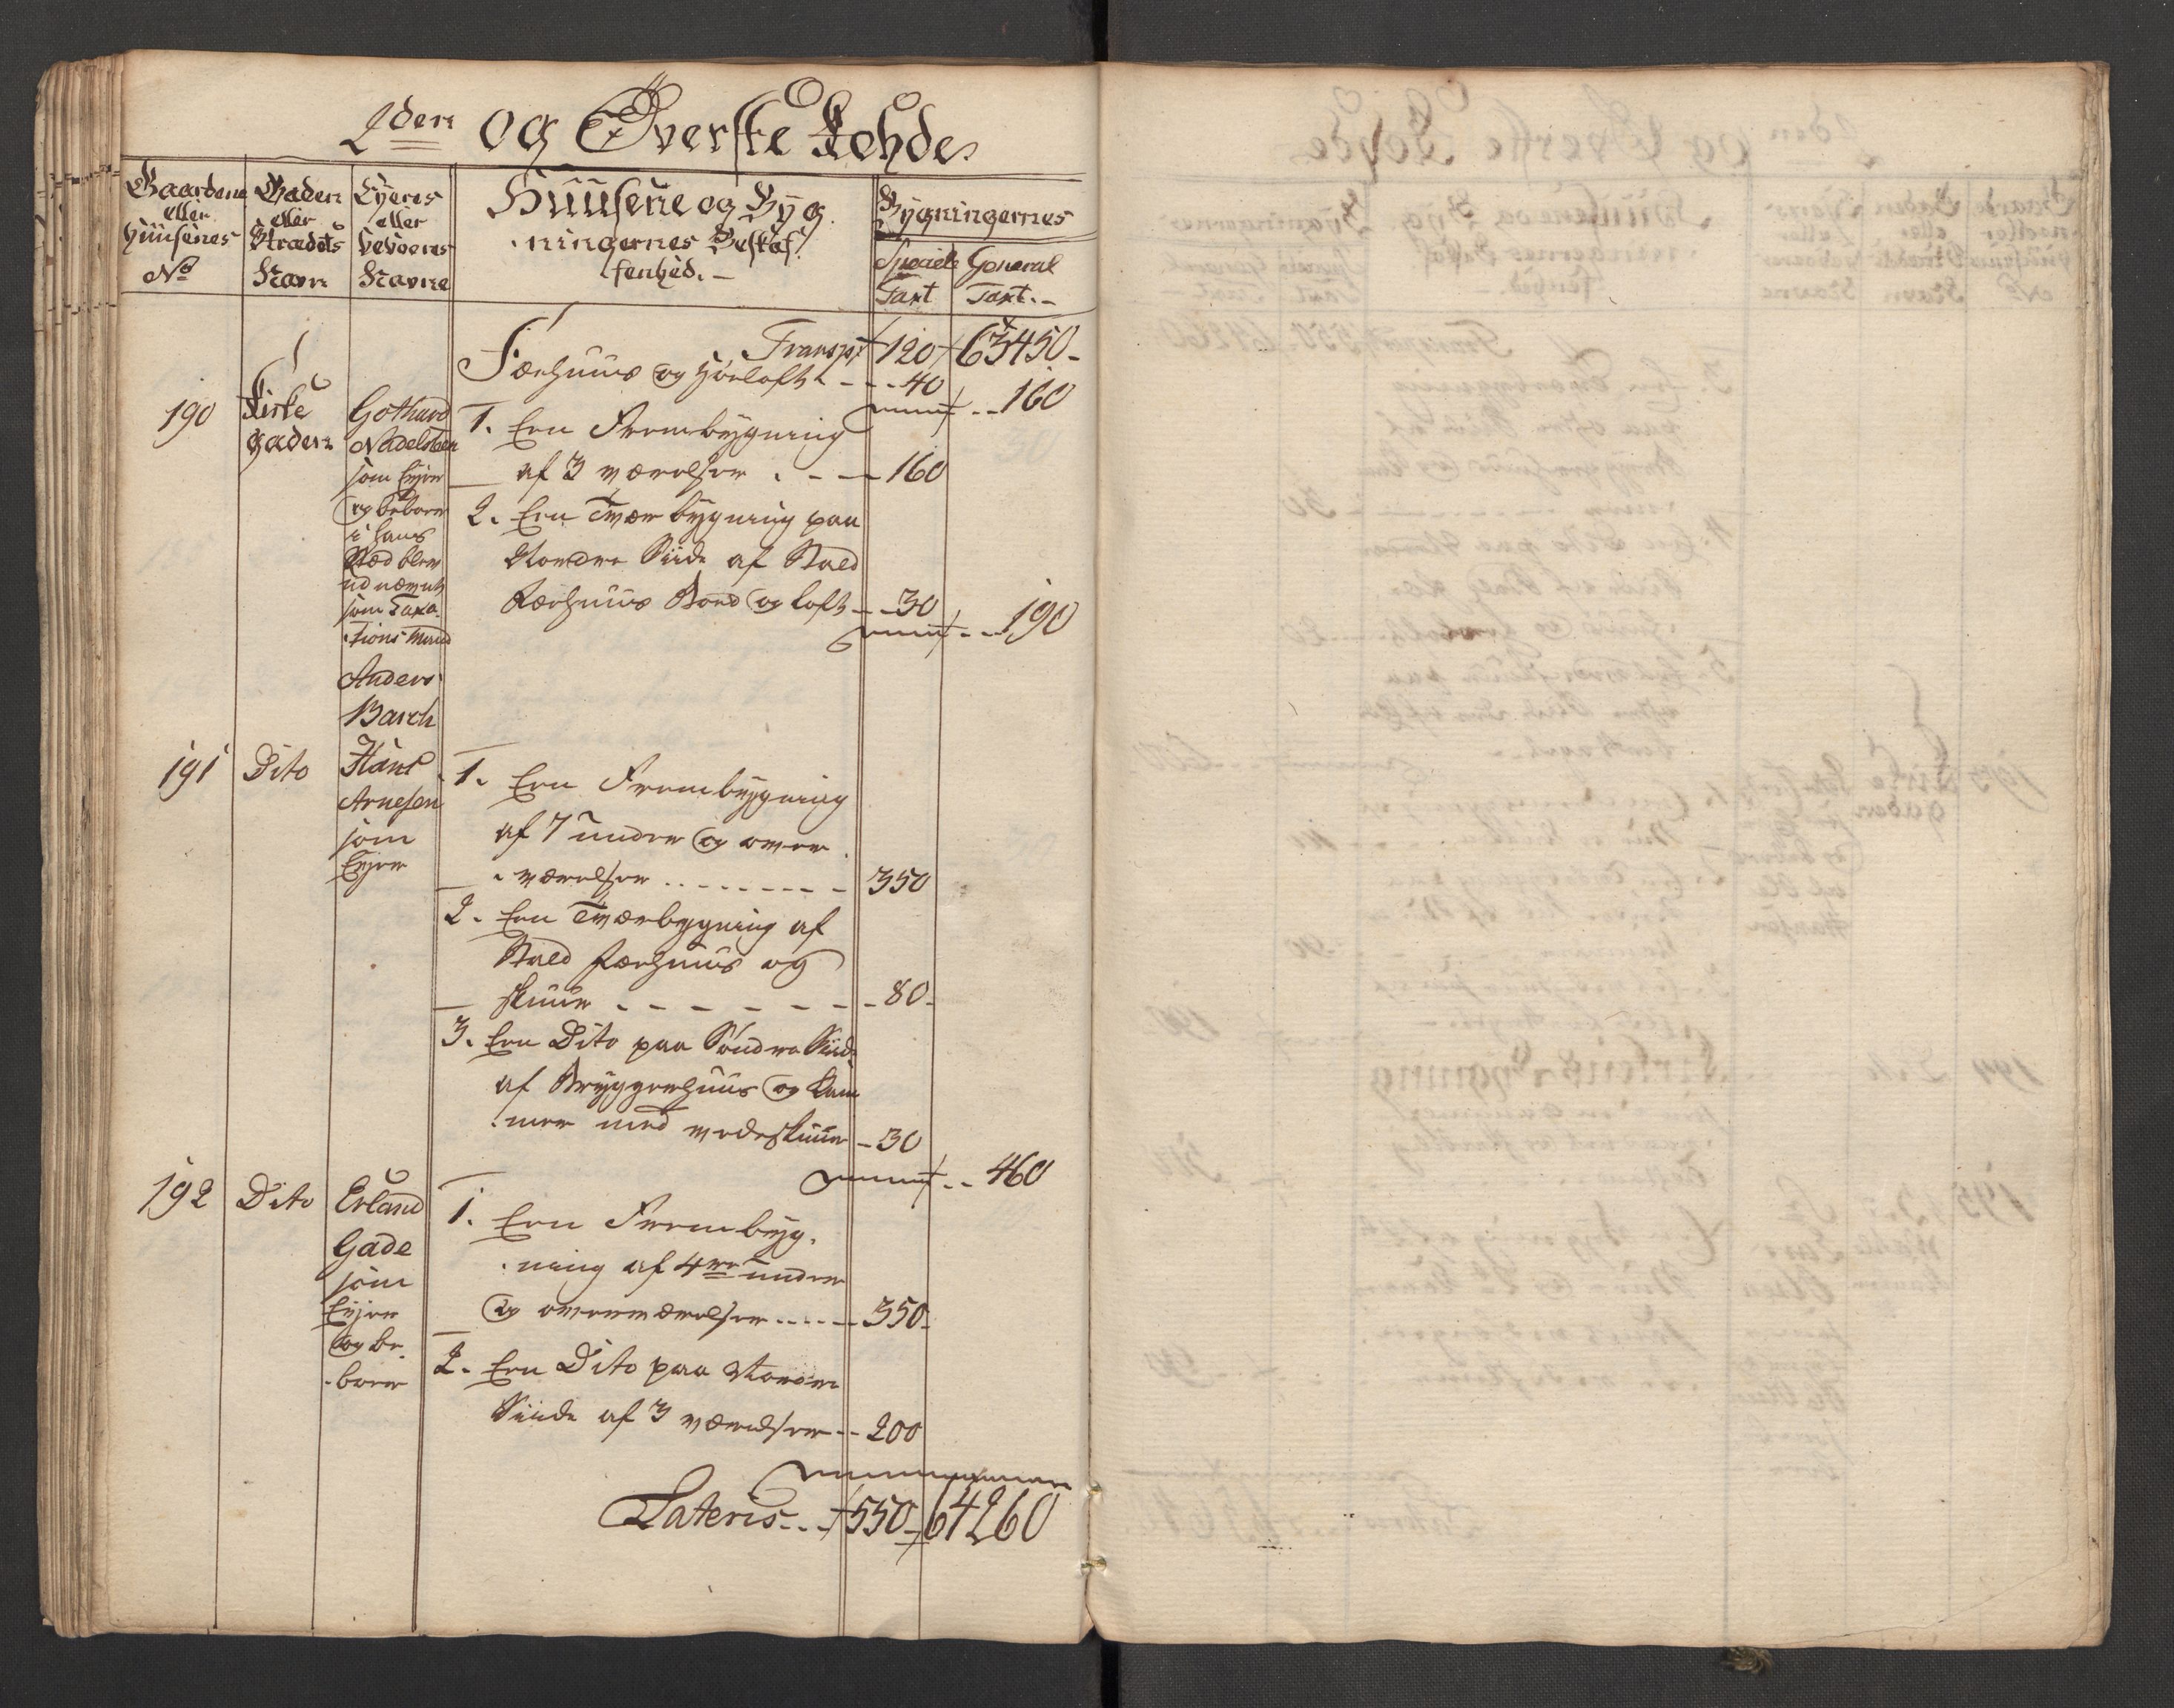 2den og Øverste Rohde
Gaardene eller Huusenes No
Gaden eller Strædets Navn
Eyeres eller beboeres Navne
Huusene og Byg
ningernes Beskaf
fenhed.
Bygningernes
Speciele Taxt
General Taxt.
Transpt 120 63450
Færhuus og Høeloft 40
160
190
Kirke
gaden
Gothard
Nadelsteen
som Eyer
og beboer
i hans
Sted blev
udnævnt
som Taxa
tions Mand
Anders
Barch
1. Een Frembygning
af 3 værelser 160
2. Een Tværbygning paa
Nordre Siide af Stald
Færhuus Boed og loft 30
190
191
Dito
Hans
Arnesen
som
Eyer
1. Een Frembygning
af 7 under og over
værelser 350
2. Een Tværbygning af
Stald færhuus og
skuur 80
3. Een Dito paa Søndre Siide
af Bryggerhuus og Kam
mer med vedeskuur 30
460
192
Dito
Erland
Gade
som
Eyer
og be
boer
1. Een Frembyg
ning af 4re under
og overværelser 350
2. Een Dito paa Nordre
Siide af 3 værelser 200
Lateris 550 64260